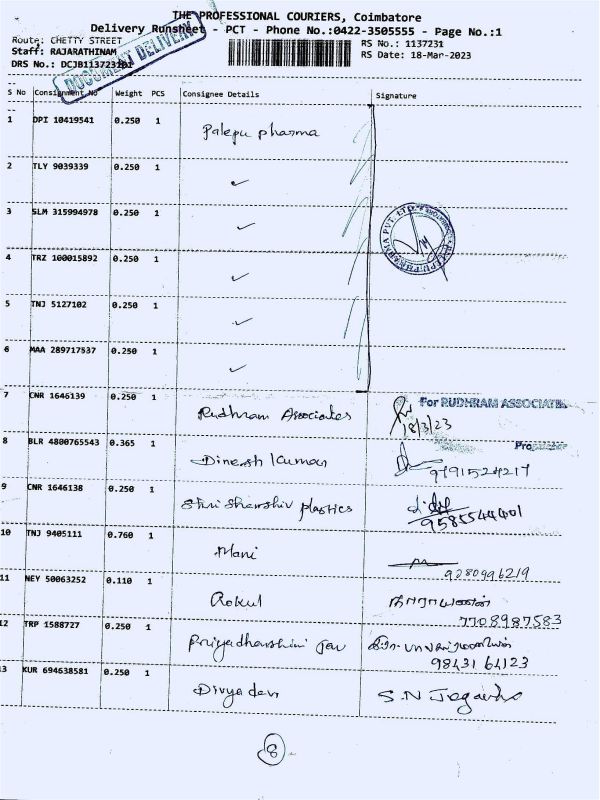 THE PROFESSIONAL COURIERS, Coimbatore
Delivery Runsheet - PCT - Phone No.:0422-3505555 - Page No.:1
Route: CHETTY STREET
RS No.: 1137231
Staff: RAJARATHINAM
RS Date: 18-Mar-2023
DRS No.: DCJB1137231
DOCUMENT DELIVERY
S No Consignment No Weight PCS Consignee Details Signature
1 DPI 10419541 0.250 1 Palepu pharma
2 TLY 9039339 0.250 1 ✓
3 SLM 315994978 0.250 1 ✓
PHARMA PVT. LTD.
4 TRZ 100015892 0.250 1 ✓
5 TNJ 5127102 0.250 1 ✓
6 MAA 289717537 0.250 1 ✓
7 CNR 1646139 0.250 1 Rudhram Associates For RUDHRAM ASSOCIATE
18/3/23
8 BLR 4800765543 0.365 1 Dinesh kumar
9 CNR 1646138 0.250 1 plastics
9585544401
10 TNJ 9405111 0.760 1 Mani
9280996219
11 NEY 50063252 0.110 1 Rokul நாராயணன்
7708987583
12 TRP 1588727 0.250 1 Priyadharshini
98431 64123
13 KUR 694638581 0.250 1 Divya devi
8